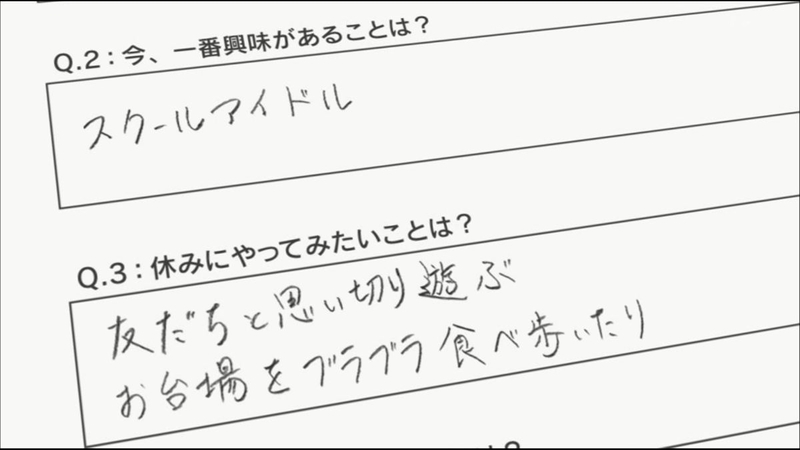 Q.2：今、一番興味があることは？
スクールアイドル
Q.3：休みにやってみたいことは？
友だちと思い切り遊ぶ
お台場をブラブラ食べ歩いたり